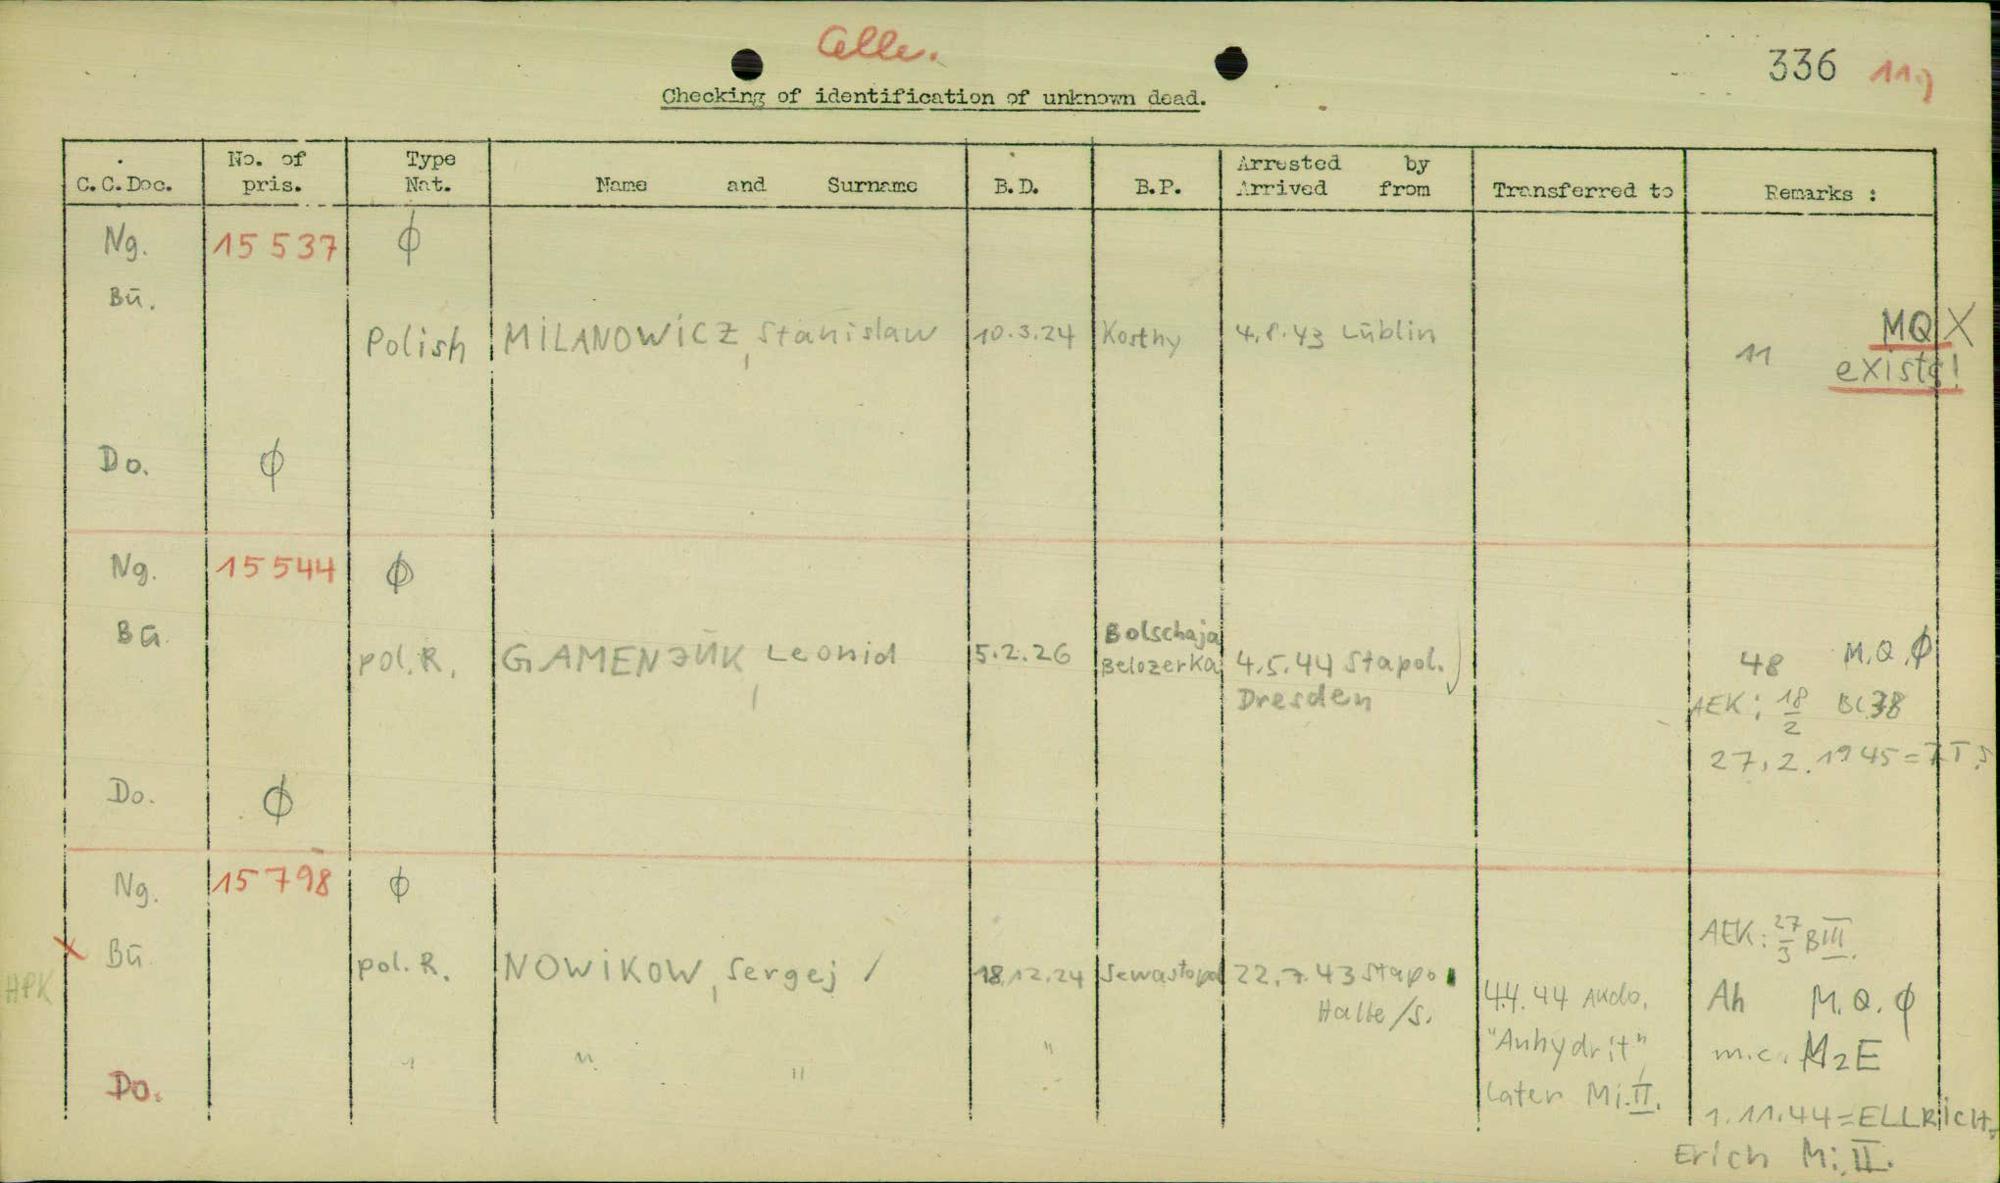 Celle.
336 119
Checking of identification of unknown dead.
C.C.Doc. No. of pris. Type Nat. Name and Surname B.D. B.P. Arrested by Arrived from Transferred to Remarks :
Ng. 15 537 ϕ
Bü.
Polish MILANOWICZ, Stanislaw 10.3.24 Kosthy 4.8.43 Lüblin 11 MQ X
exists!
Do. ϕ
Ng. 15 544 ϕ
Bü.
pol.R. GAMENJUK, Leonid 5.2.26 Bolschaja Belozerka 4.5.44 Stapol. Dresden 48 M.Q.ϕ
AEK: 18/2 BL38
27.2.1945=
Do. ϕ
Ng. 15 798 ϕ
AEK: 27/3 BIII.
X Bü. pol.R. NOWIKOW, Sergej / 18.12.24 Sewastopol 22.7.43 Stapo Halle/S. 4.4.44 AKdo. "Anhydrit", later Mi.II. Ah M.Q.ϕ
HPK
m.c. M2E
Do. " " " "
1.11.44=ELLRICH,
Erich Mi.II.